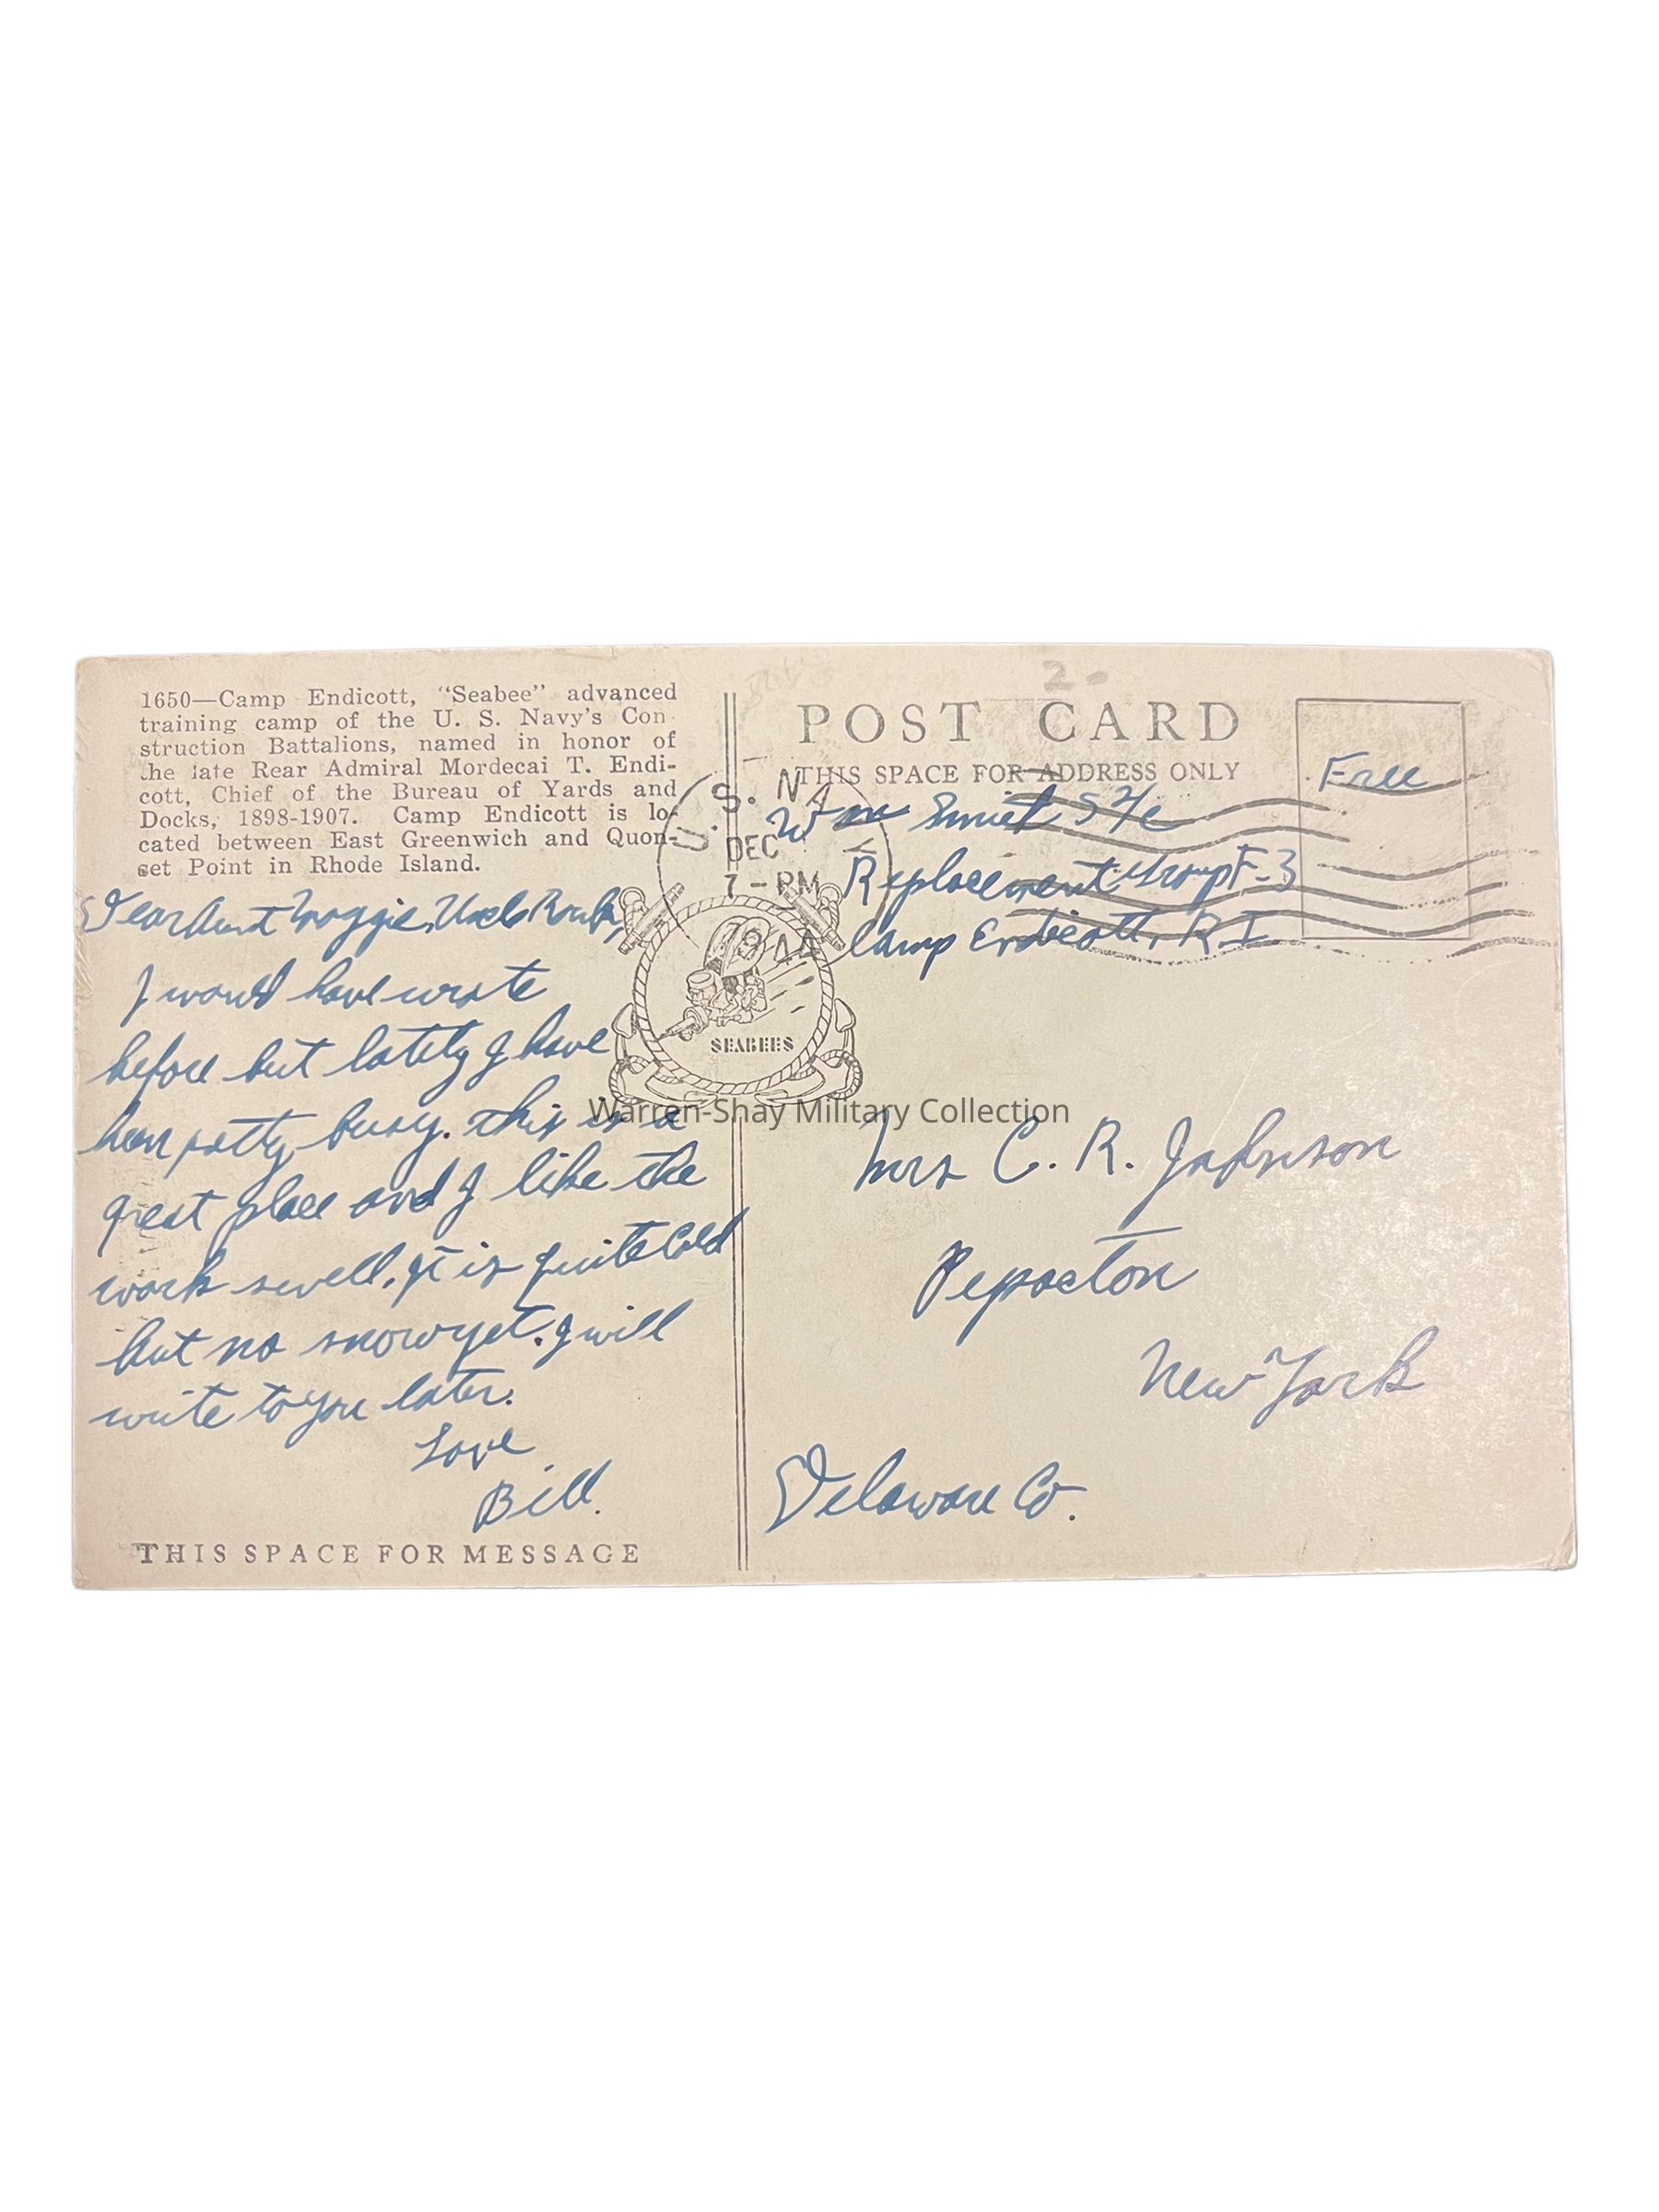 1650—Camp Endicott, "Seabee" advanced
training camp of the U. S. Navy's Con-
struction Battalions, named in honor of
the late Rear Admiral Mordecai T. Endi-
cott, Chief of the Bureau of Yards and
Docks, 1898-1907. Camp Endicott is lo-
cated between East Greenwich and Quon-
set Point in Rhode Island.
Dear Aunt Maggie, Uncle
I would have wrote
before but lately I have
been pretty busy. This is a
great place and I like the
work swell. It is quite Cold
but no snow yet. I will
write to you later.
Love
Bill.
THIS SPACE FOR MESSAGE
2-
POST CARD
THIS SPACE FOR ADDRESS ONLY
Free
U. S. N
DEC
7-PM
SEABEES
Wm S 2/c
Replacement Group F-3
Camp Endicott, R.I
Warren-Shay Military Collection
Mrs C. R. Johnson
Pepacton
New York
Delaware Co.